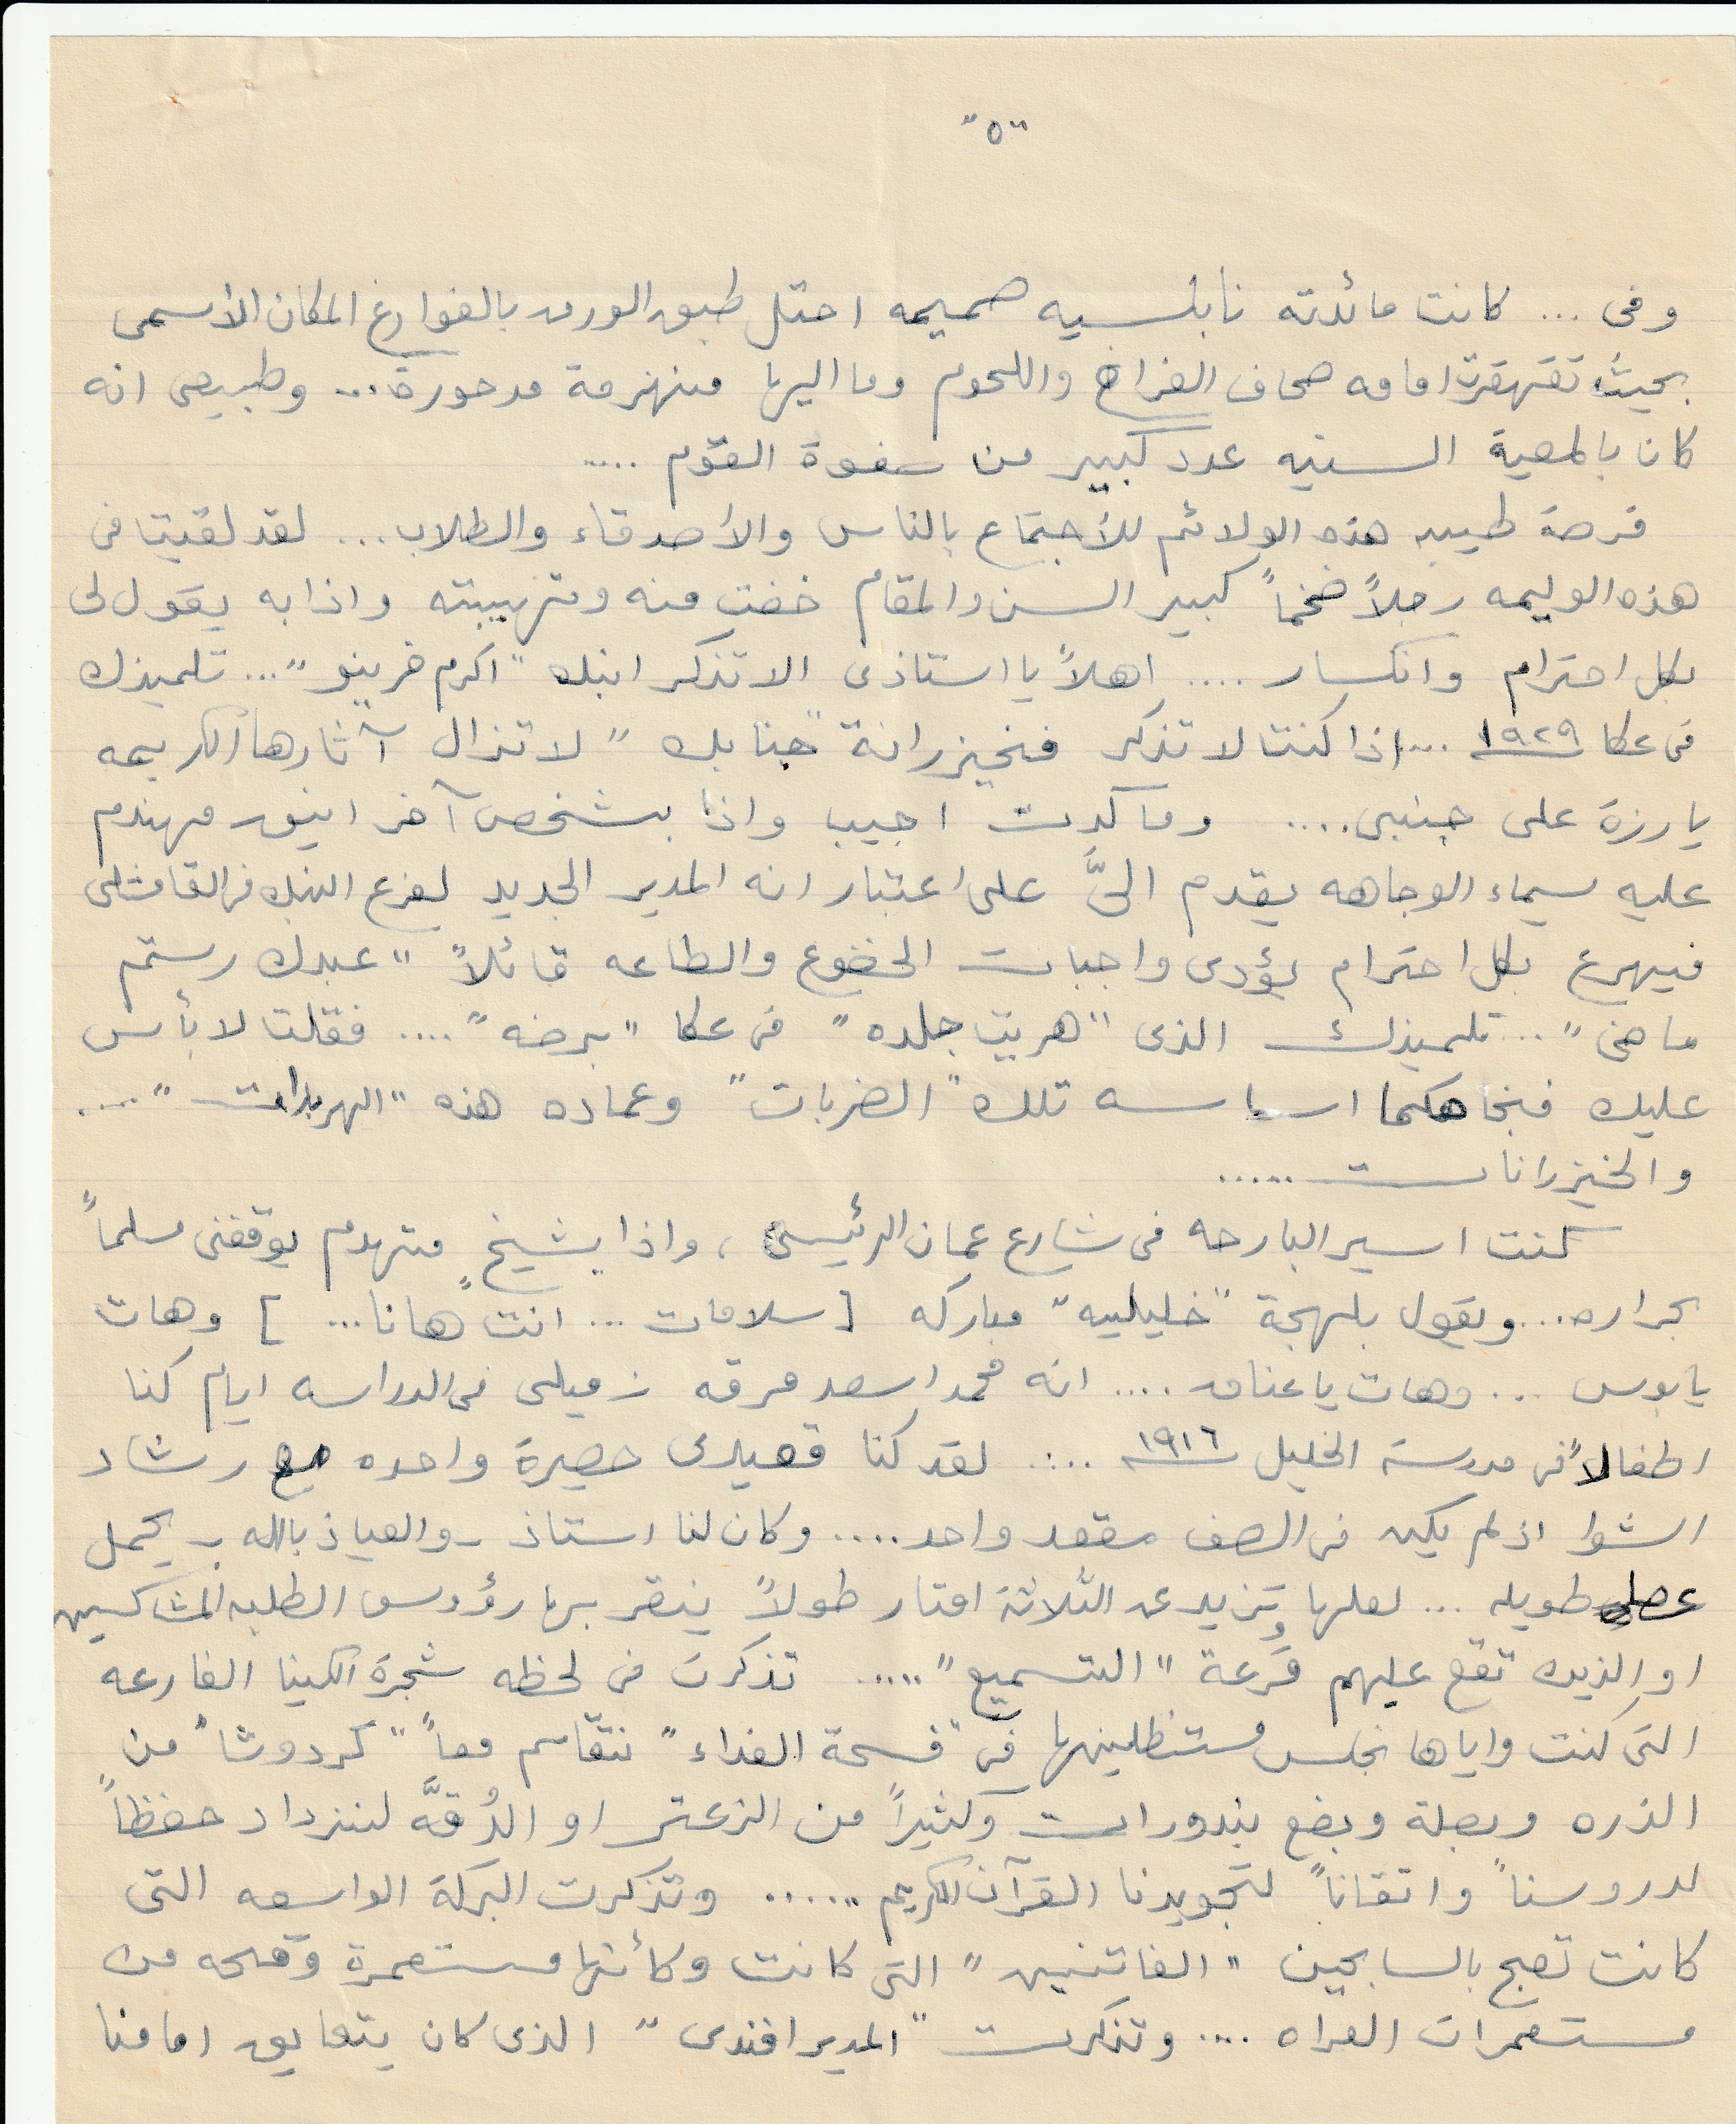 "٥"
وفى ... كانت مائدته نابلسيه صميمه احتل طبق الورق بالفوارغ المكان الأسمى
بحيث تقهقرت امامه صحاف الفراخ واللحوم وما اليها منهزمة مدحورة... وطبيعى انه
كان بالمعية السنيه عدد كبير من صفوة القوم .....
فرصة طيبه هذه الولائم للأجتماع بالناس والأصدقاء والطلاب... لقد لقيت فى
هذه الوليمه رجلاً ضخماً كبير السن والمقام خفت منه وتهيبته واذا به يقول لى
بكل احترام وانكسار .... اهلاً يا استاذى الا تذكر ابنك "اكرم خرينو"... تلميذك
فى عكا ١٩٢٩ ... اذا كنت لا تذكر فخيزرانة "جنابك" لا تزال آثارها الكريمه
بارزة على جنبى.... وما كدت اجيب واذا بشخص آخر انيق مهندم
عليه سيماء الوجاهه يقدم الىَّ على اعتبار انه المدير الجديد لفرع البنك فى القامشلى
فيهرع بكل احترام يؤدى واجبات الخضوع والطاعه قائلاً "عبدك رستم
ماضى"... تلميذك الذى "هريت جلده" فى عكا "برضه".... فقلت لا بأس
عليك فنجاحكما اساسه تلك "الضربات" وعماده هذه "الهربدات"....
والخيزرانات .....
كنت اسير البارحه فى شارع عمان الرئيسى، واذا بشيخٍ متهدم يوقفنى مسلماً
بحراره... ويقول بلهجة "خليليه" مباركه [سلامات ... انت هانا...] وهات
يا بوس ... وهات يا عناق .... انه محمد اسعد مرقه زميلى فى الدراسه ايام كنا
اطفالاً فى مدرسة الخليل ١٩١٦ .... لقد كنا قعيدى حصيرة واحده مع رشاد
الشوا اذ لم يكن فى الصف مقعد واحد .... وكان لنا استاذ - والعياذ بالله - يحمل
عصا طويله ... لعلها تزيد عن الثلاثة امتار طولاً ينقر بها رؤوس الطلبه المشاكسين
او الذين تقع عليهم قرعة "التسميع" ..... تذكرت فى لحظه شجرة الكينا الفارعه
التى كنت واياها نجلس مستظلينها فى "فسحة الغداء" نتقاسم معاً "كردوشاً" من
الذره وبصلة وبضع بندورات وكثيراً من الزعتر او الدُقةَّ لنزداد حفظاً
لدروسنا واتقاناً لتجويدنا القرآن الكريم ..... وتذكرت البركة الواسعه التى
كانت تعج بالسابحين "الفاتنين" التى كانت وكأنها مستعمرة وقحه من
مستعمرات العراه .... وتذكرت "المدير افندى" الذى كان يتعايق امامنا